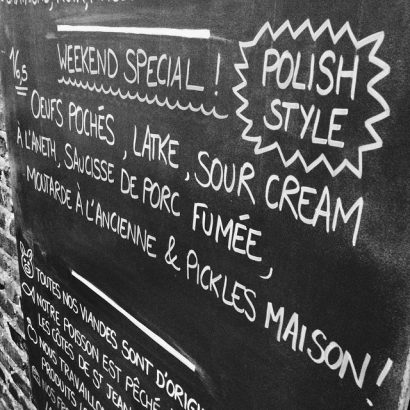 WEEKEND SPECIAL !
POLISH
STYLE
16,5
OEUFS POCHÉS, LATKE, SOUR CREAM
À L'ANETH, SAUCISSE DE PORC FUMÉE,
MOUTARDE À L'ANCIENNE & PICKLES MAISON!
TOUTES NOS VIANDES SONT D'ORIGI
NOTRE POISSON EST PÊCHÉ
LES CÔTES DE ST JEAN
NOUS TRAVAILLO
PRODUITS